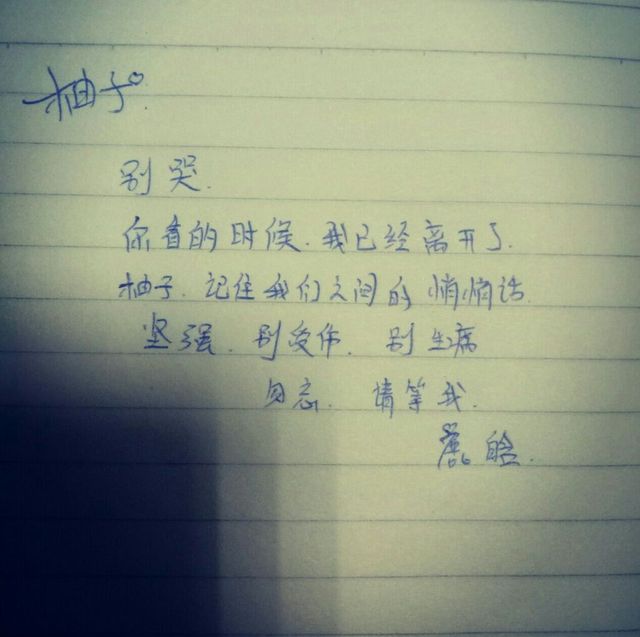 柚子
别哭.
你看的时候.我已经离开了.
柚子.记住我们之间的悄悄话.
坚强.别受伤.别生病
勿忘.请等我.